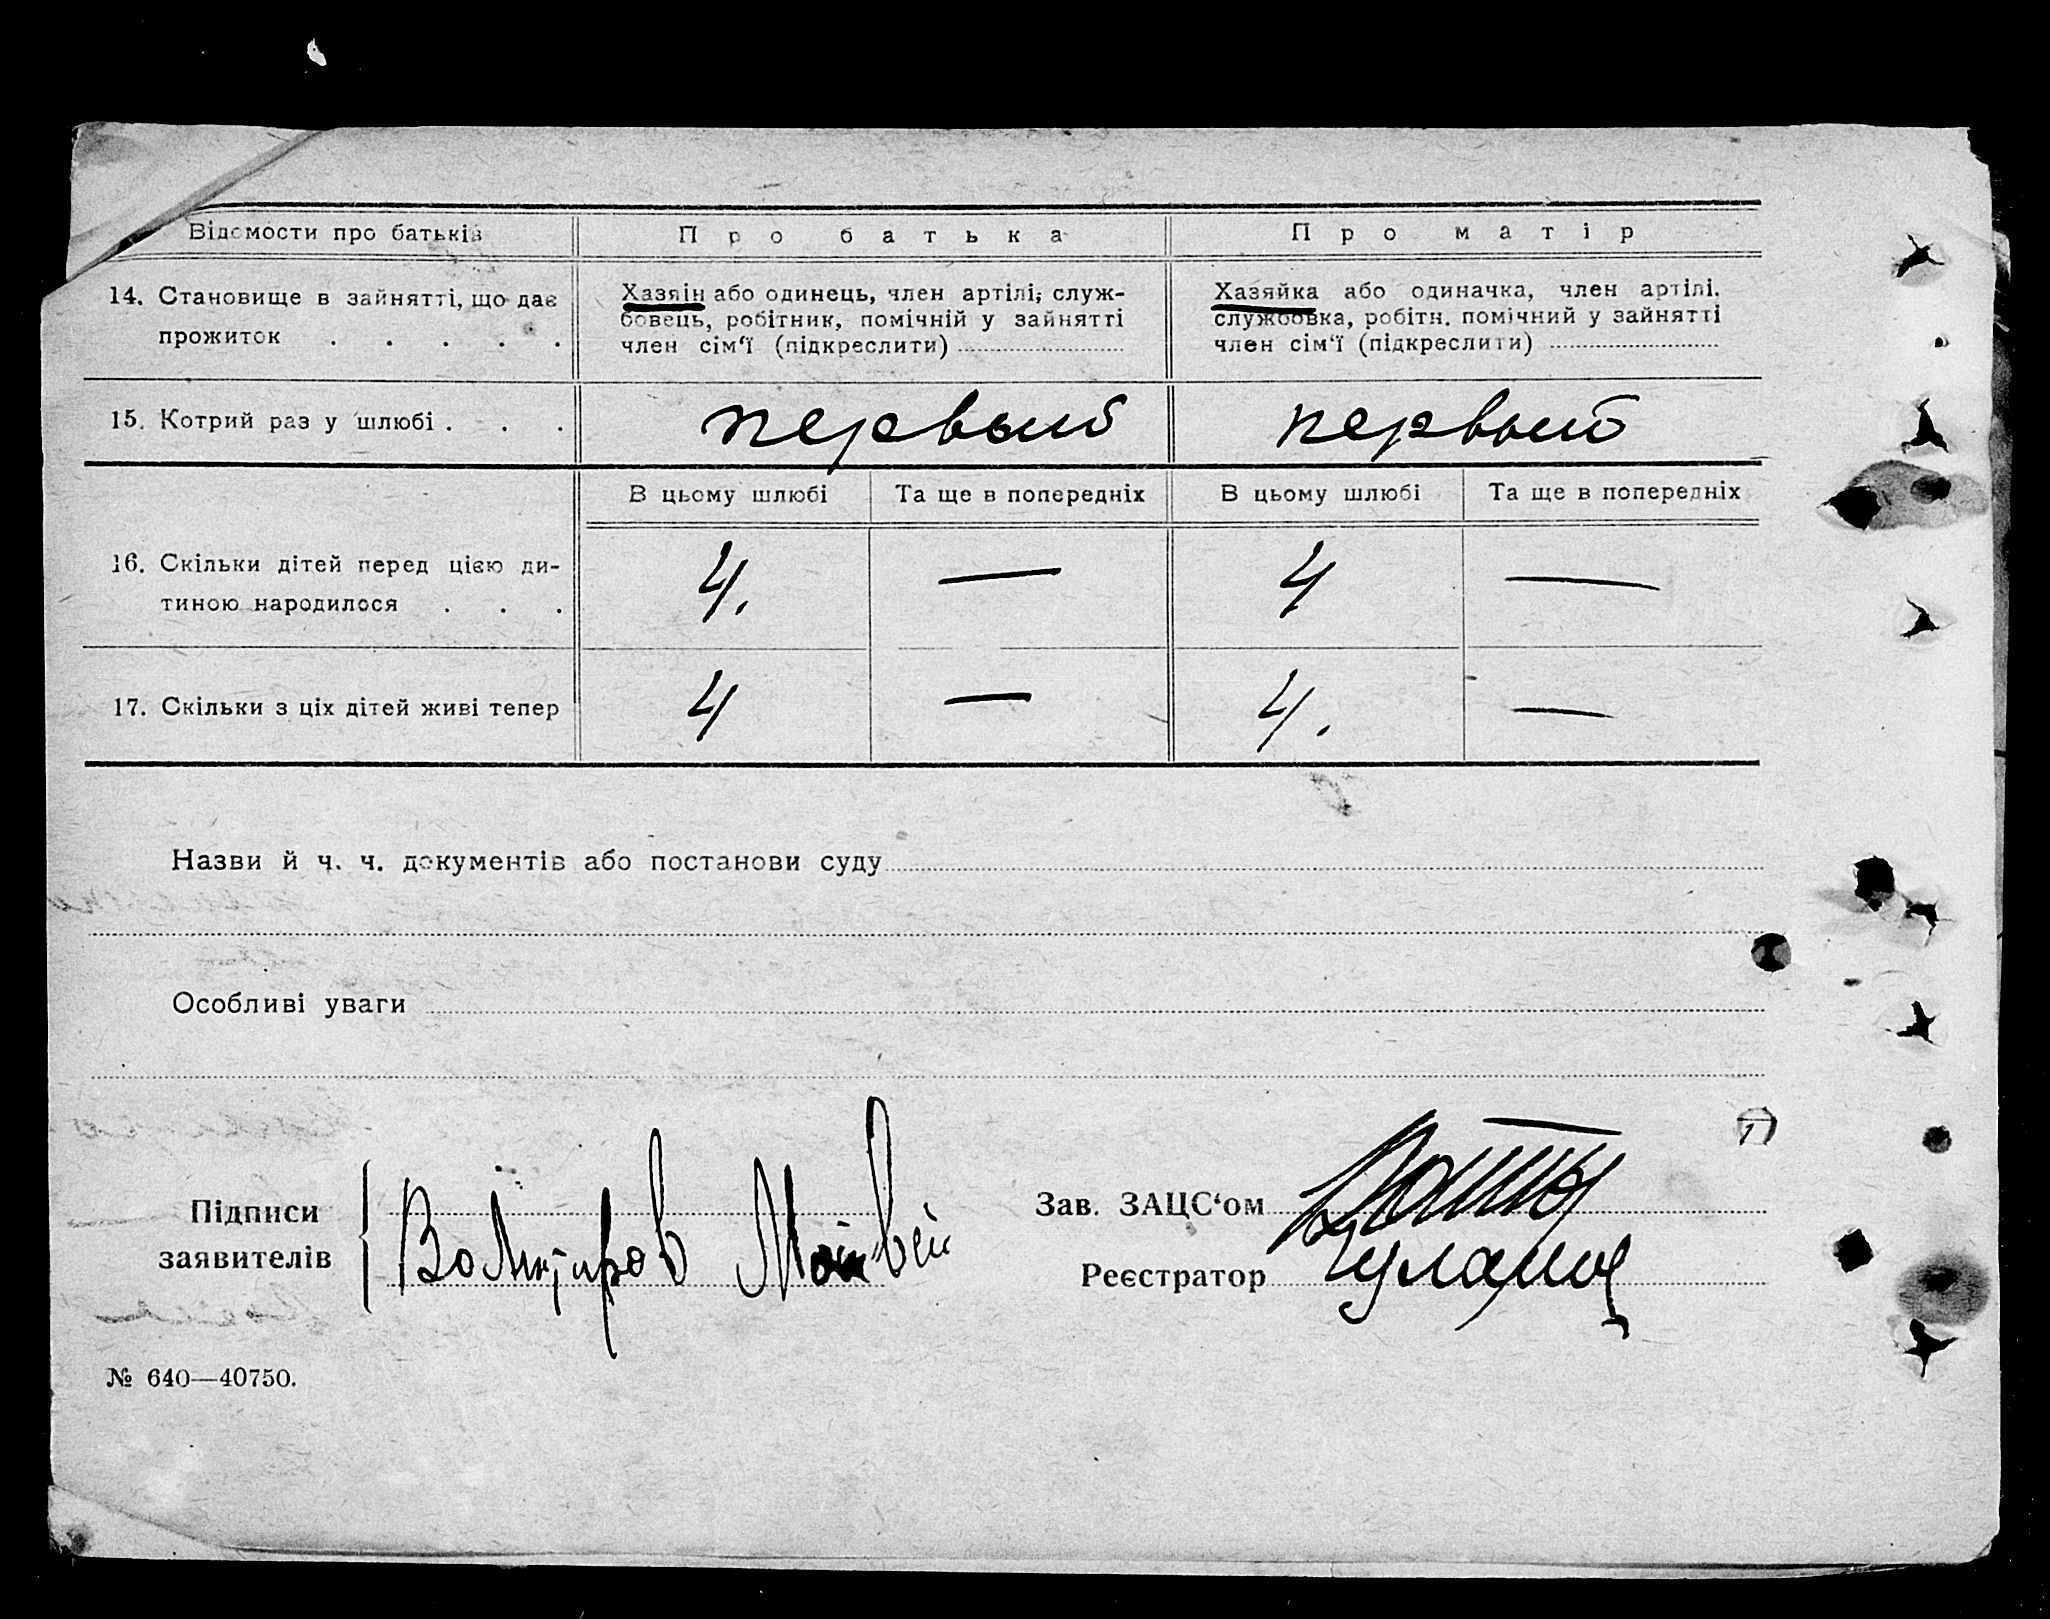 Відомости про батьків
Про батька
Про матір
14. Становище в зайнятті, що дає
прожиток . . . . .
Хазяїн або одинець, член артілі, служ-
бовець, робітник, помічній у зайнятті
член сім'ї (підкреслити)
Хазяйка або одиначка, член артілі,
службовка, робітн. помічний у зайнятті
член сім'ї (підкреслити)
15. Котрий раз у шлюбі . . .
первый
первый
В цьому шлюбі
Та ще в попередніх
В цьому шлюбі
Та ще в попередніх
16. Скільки дітей перед цією ди-
тиною народилося . . .
4.
—
4
—
17. Скільки з ціх дітей живі тепер
4
—
4.
—
Назви й ч. ч. документів або постанови суду
Особливі уваги
Підписи
заявителів
Зав. ЗАЦС'ом
Реєстратор
№ 640—40750.